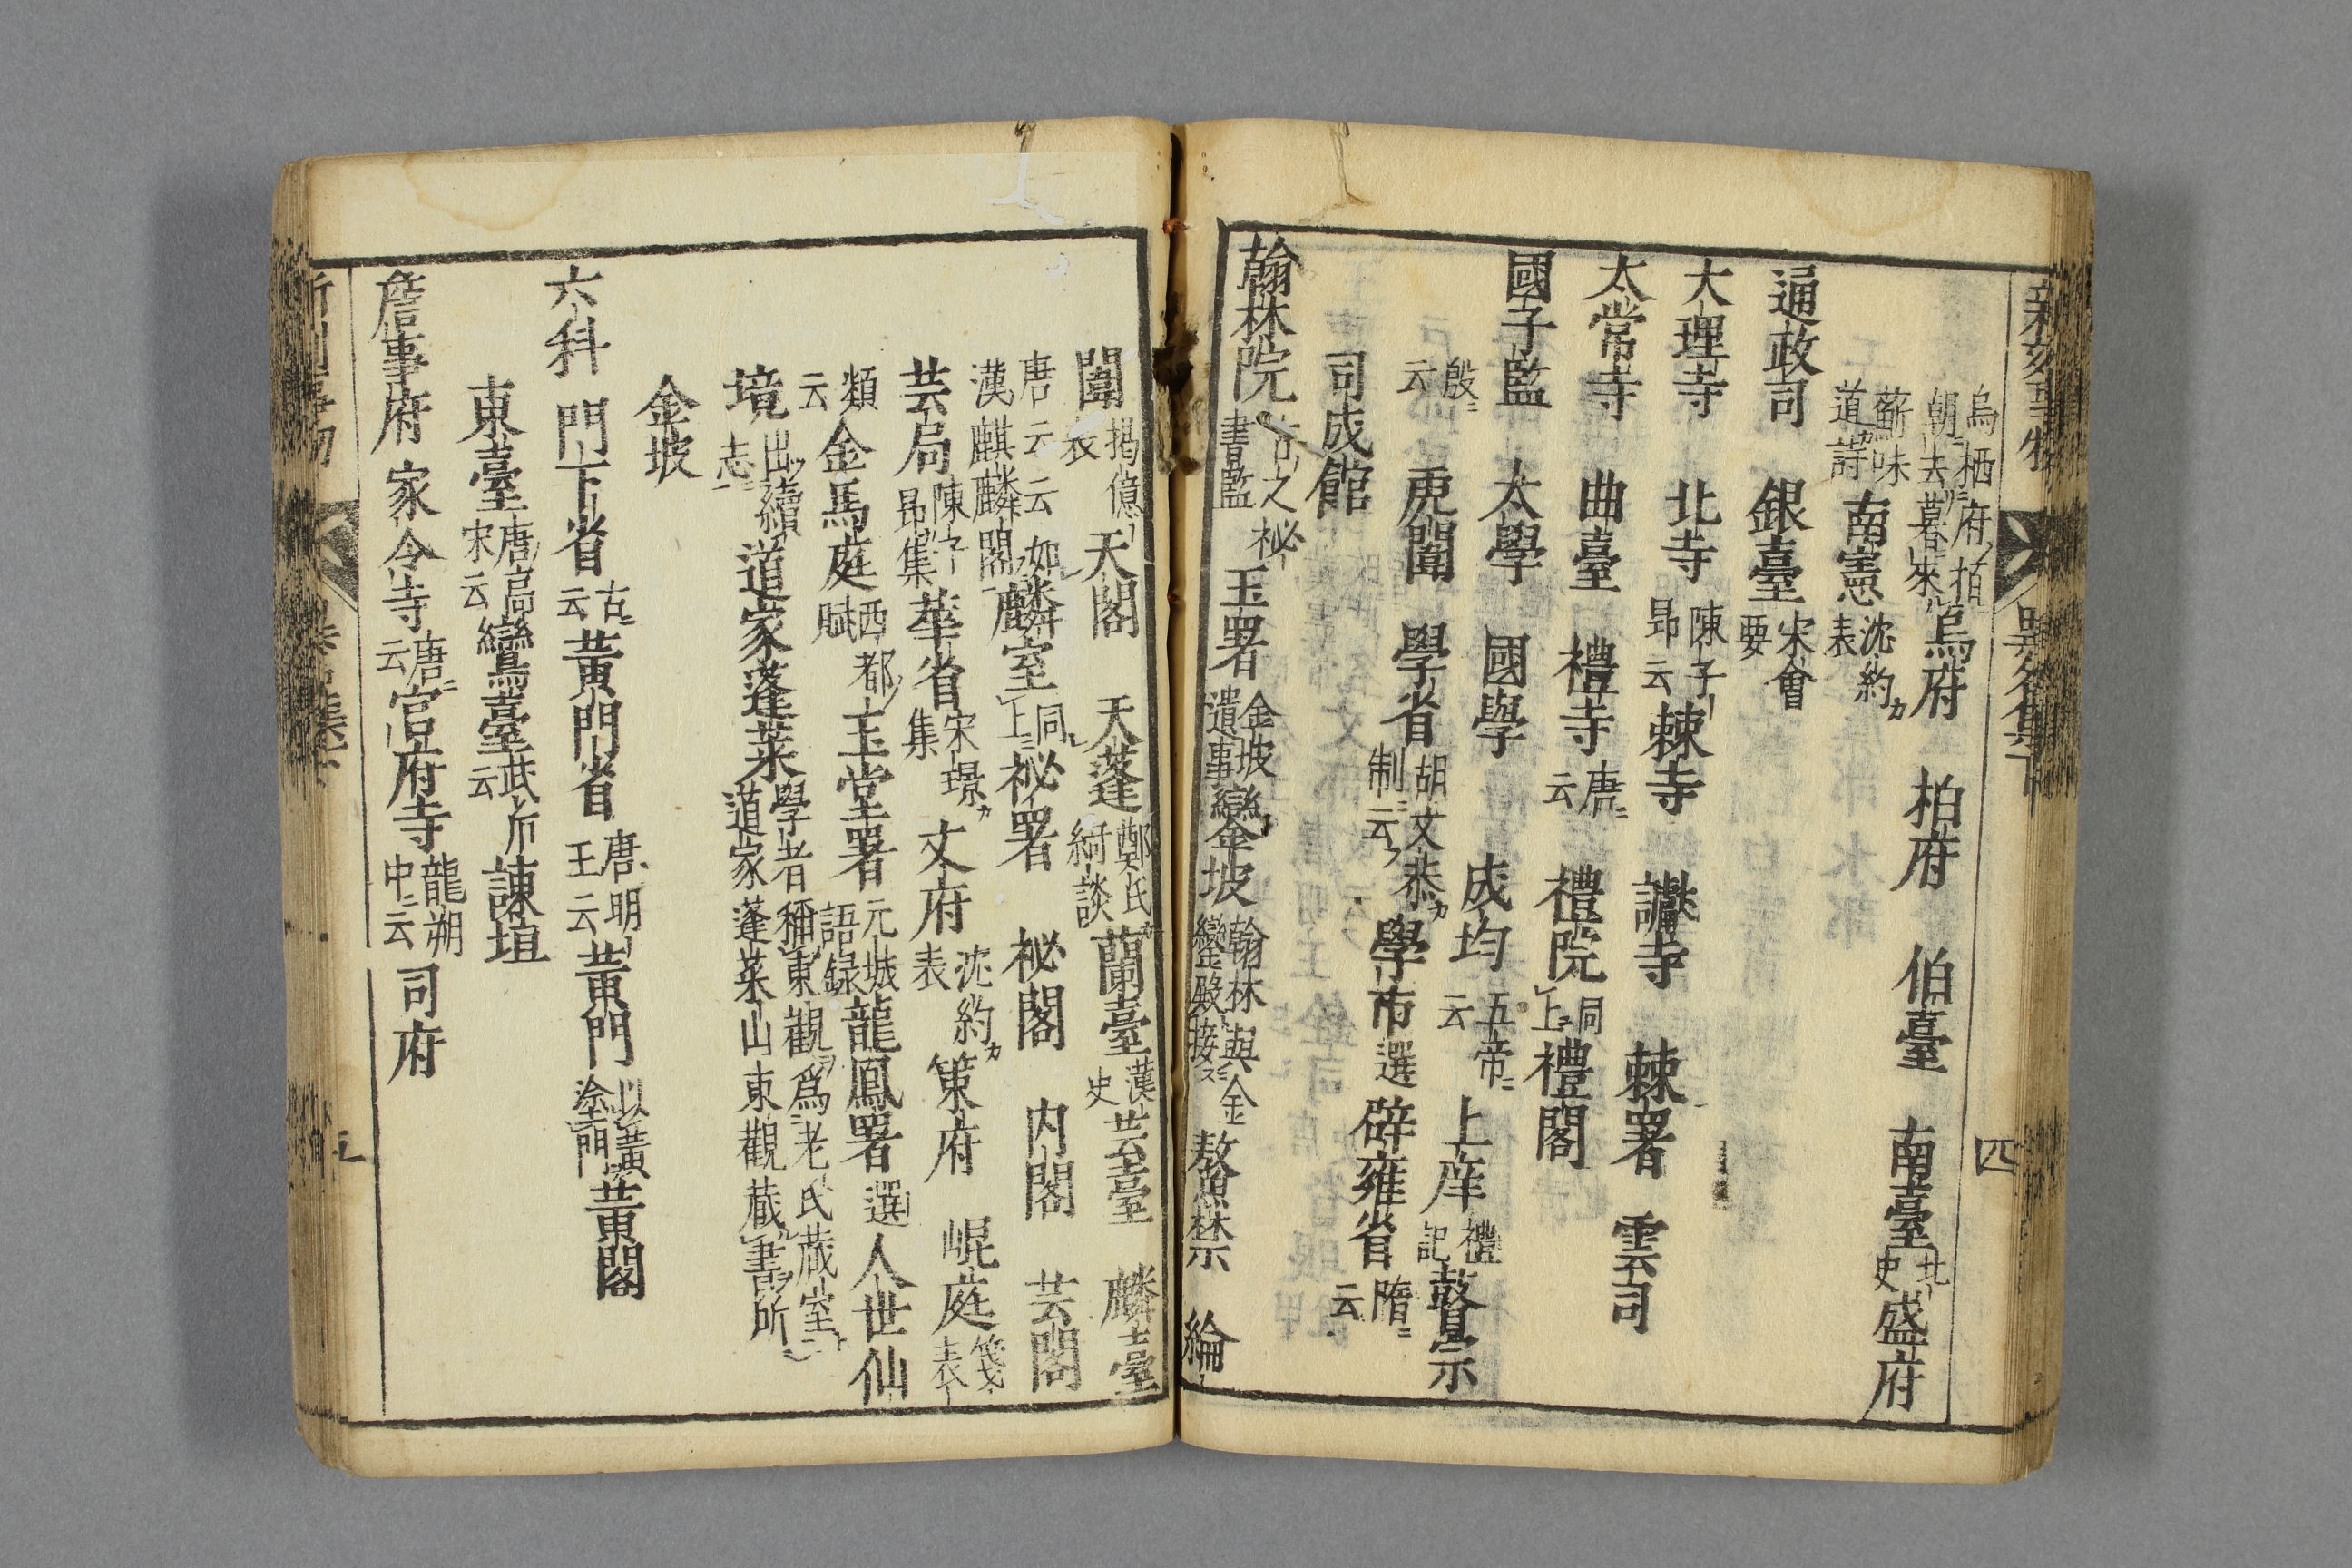 新刻事物異名集下 四
烏栖府柏朝去暮來烏府 柏府 伯臺 南臺北史盛府
蘇味道詩南憲沈約表
通政司 銀臺宋會要
大理寺 北寺陳子昻云棘寺 讞寺 棘署 雲司
太常寺 曲臺 禮寺唐云 禮院同上禮閣
國子監 太學 國學 成均五帝云 上庠禮記瞽宗
殷云 虎闈 學省胡文恭制云 學市選 辟雍省隋云
司成館
翰林院 古之祕書監 玉署金坡遺事鑾坡翰林與金鑾殿接鰲禁 綸
闈楊億表 天閣 天蓬鄭氏綺談蘭臺漢史芸臺 麟臺
唐云云如漢麒麟閣麟室同上祕署 祕閣 内閣 芸閣
芸局陳子昻集華省宋璟集 文府沈約表 策府 崐庭箋表
類云金馬庭西都賦玉堂署元城語録龍鳳署選人世仙
境出續志道家蓬萊學者稱東觀爲老氏蔵室道家蓬萊山東觀蔵書所
金坡
六科 門下省古云黃門省唐明王云黃門以黃塗門黃閣
東臺唐高宗云鸞臺武后云諫垣
詹事府 家令寺唐云宮府寺龍朔中云司府